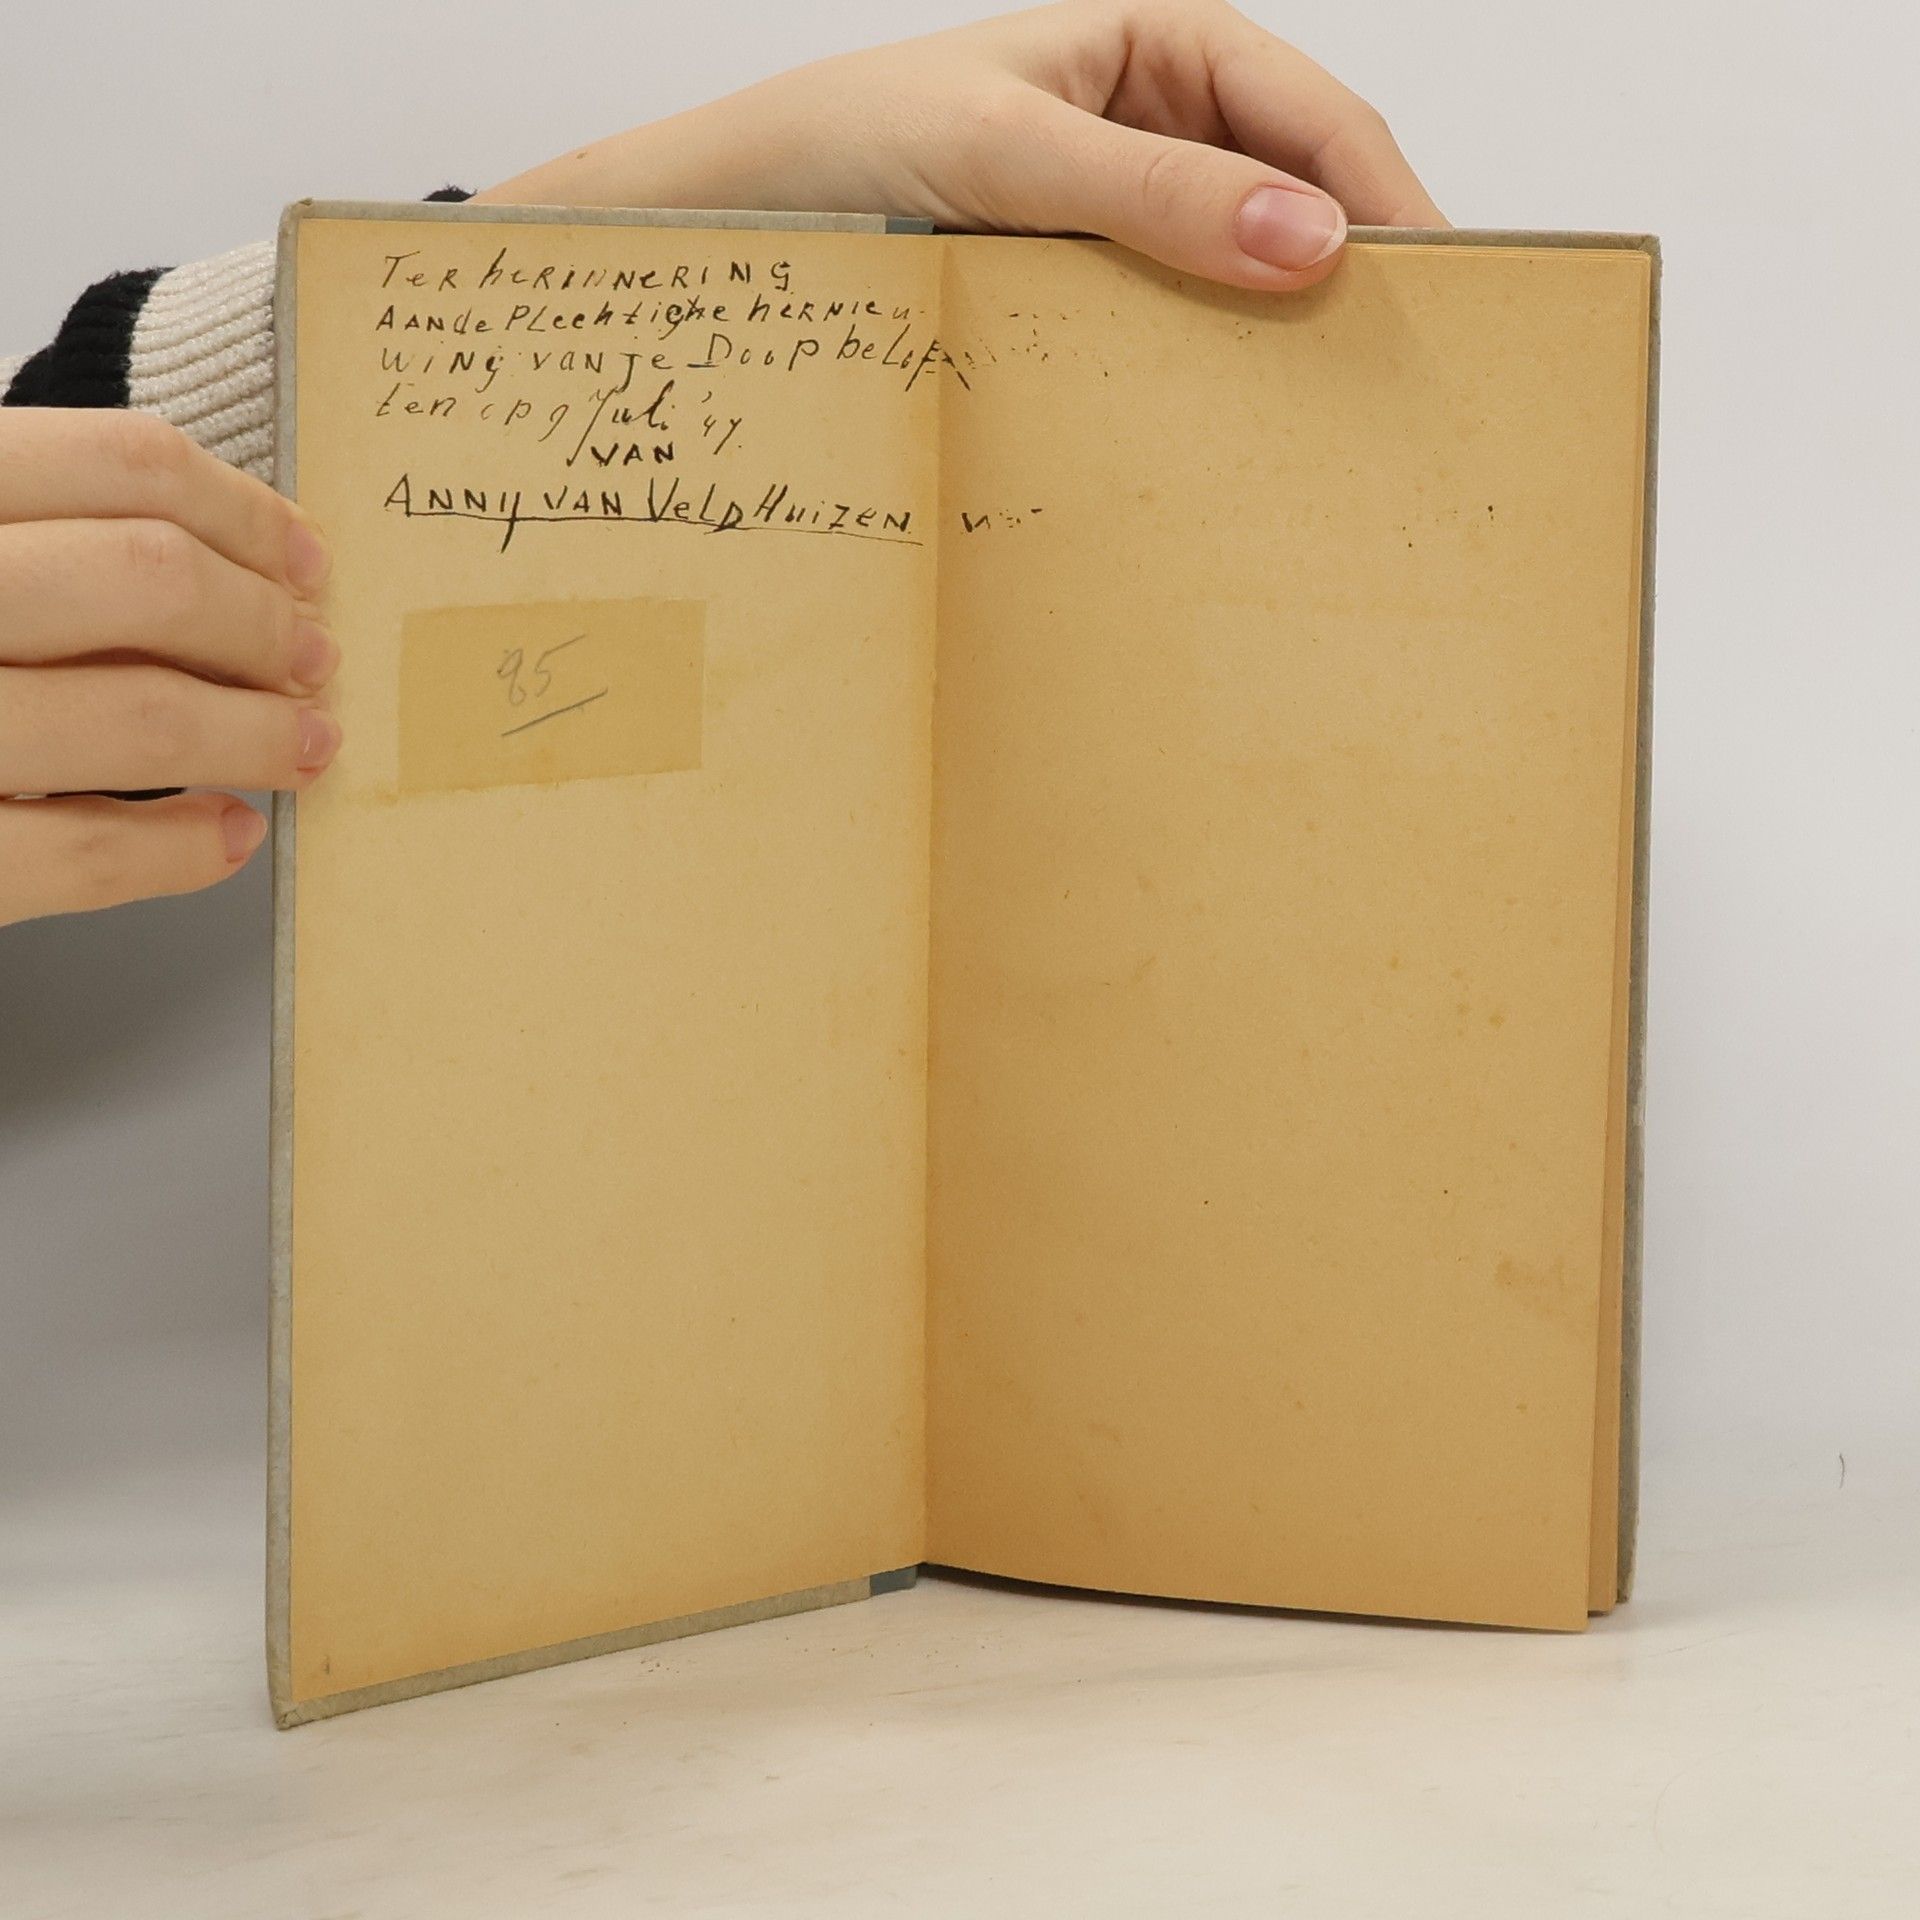 Ter herinnering
aan de plechtighe hernieu-
wing van je Doop belof
ten op 9 Juli '47.
van
Anny van Veldhuizen
85